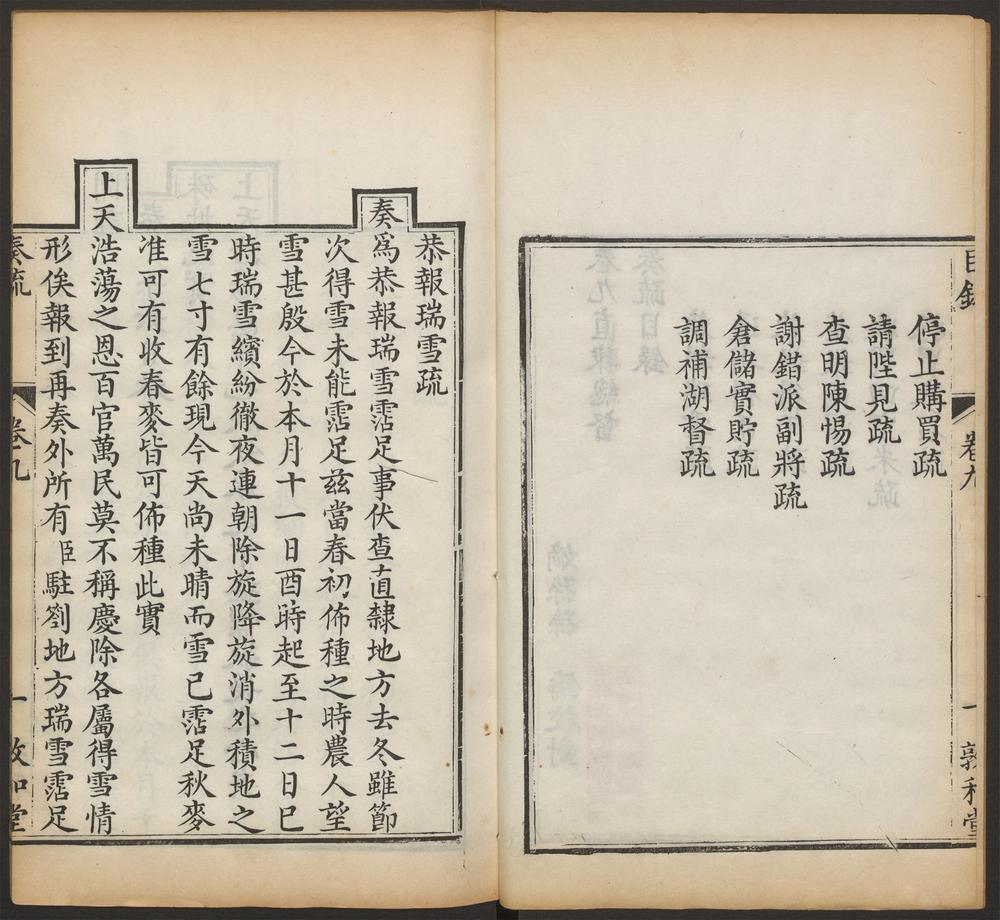 目錄 卷九 一 敦和堂
停止購買疏
請陛見疏
查明陳惕疏
謝錯派副將疏
倉儲實貯疏
調補湖督疏
恭報瑞雪疏
奏爲恭報瑞雪霑足事伏查直隸地方去冬雖節
次得雪未能霑足兹當春初佈種之時農人望
雪甚殷今於本月十一日酉時起至十二日巳
時瑞雪繽紛徹夜連朝除旋降旋消外積地之
雪七寸有餘現今天尚未晴而雪已霑足秋麥
准可有收春麥皆可佈種此實
上天浩蕩之恩百官萬民莫不稱慶除各屬得雪情
形俟報到再奏外所有臣駐劄地方瑞雪霑足
奏疏 卷九 一 敦和堂